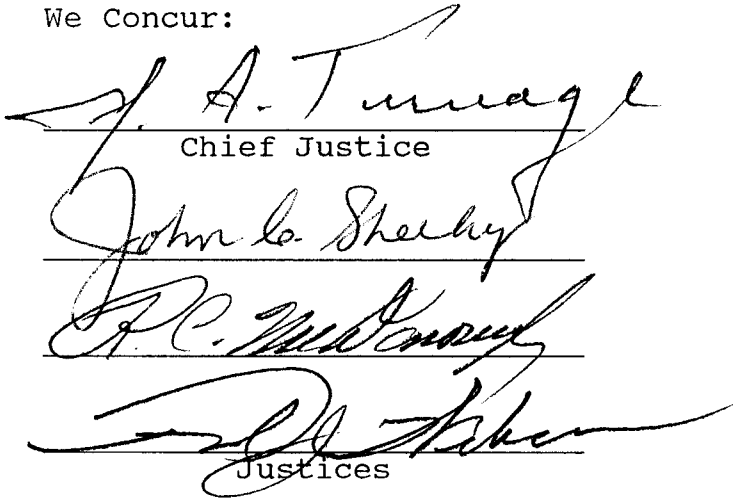 We Concur:
J. A. Turnage
Chief Justice
John C. Sheehy
R. C. McDonough
Justices